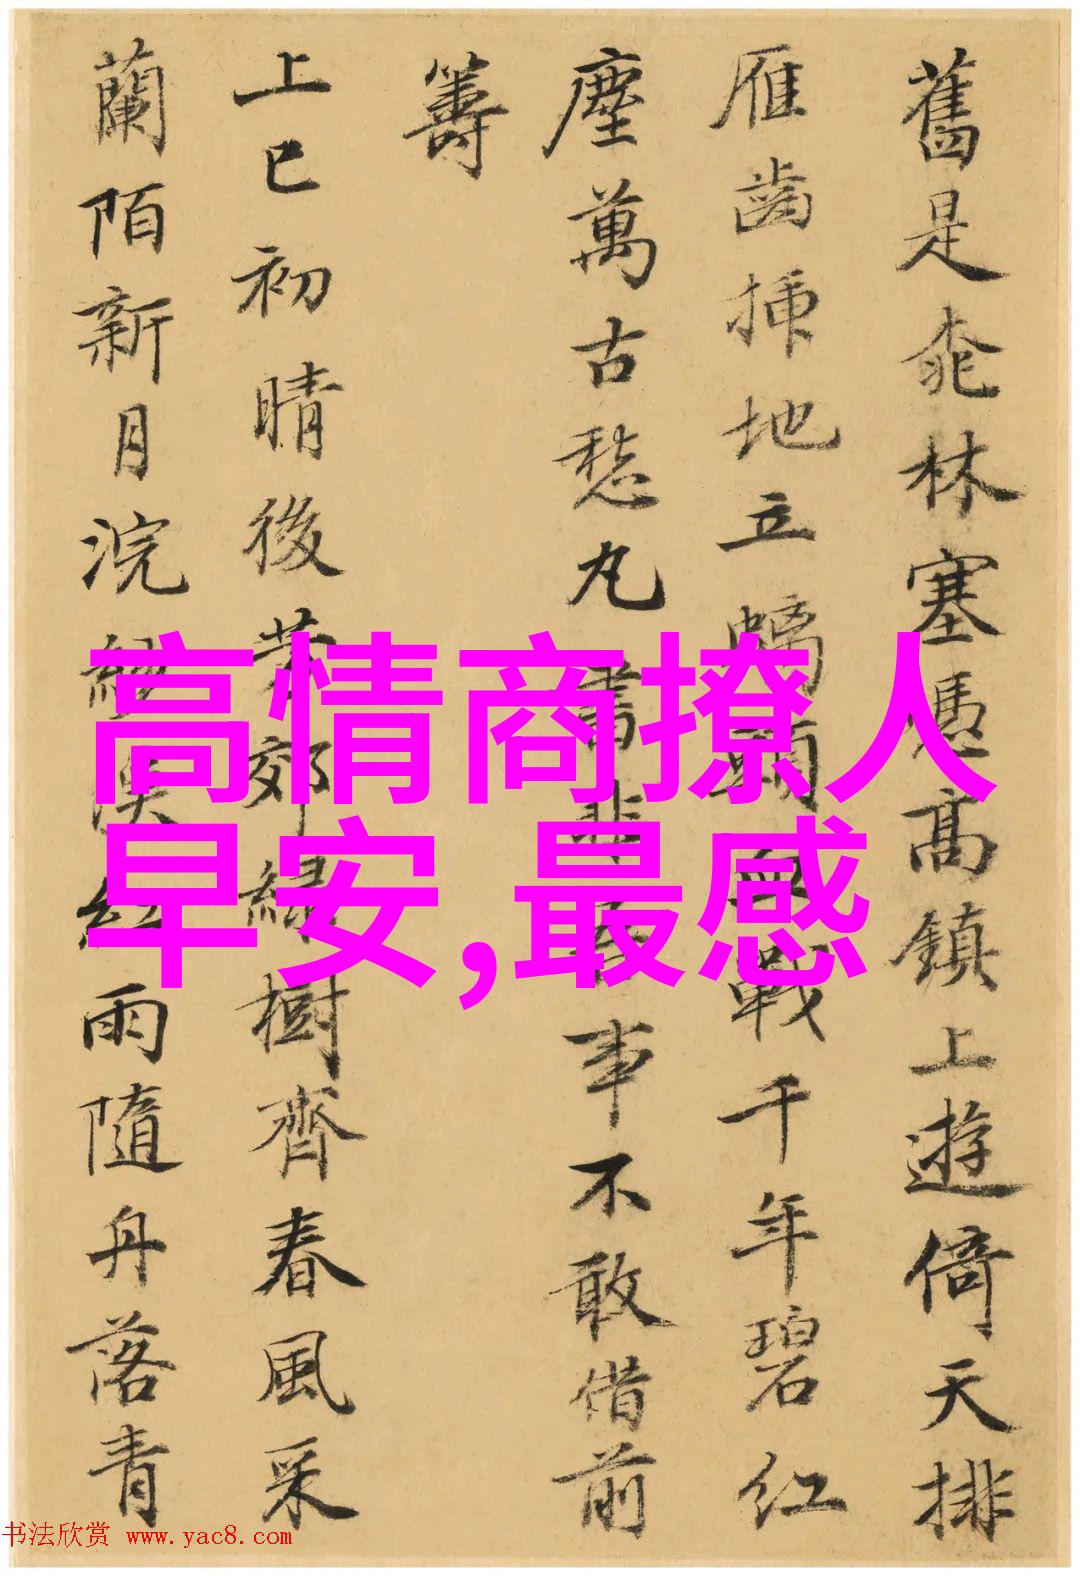 舊是桃林塞憑高鎮上遊倚天排
雁齒插地立螭頭血戰千年碧紅
塵萬古愁丸書非吾事不敢借前
籌
上巳初晴後芳郊綠樹齊春風采
蘭陌新月浣紗溪紅雨隨舟落青
高情商撩人
早安,最感
书法欣赏 www.yac8.com